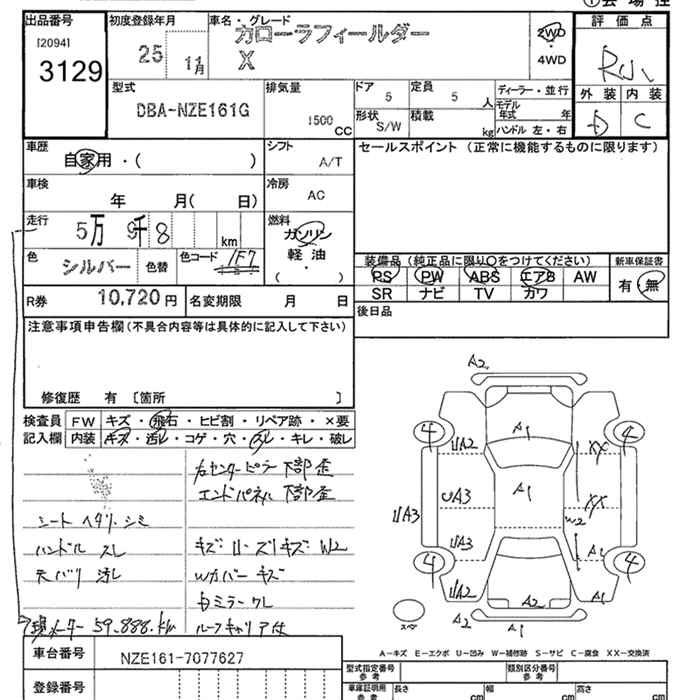 出品番号
[2094]
3129
初度登録年月
25
11月
車名・グレード
カローラフィールダー
X
2WD
4WD
評価点
外装 内装
D C
型式
DBA-NZE161G
排気量
1500
CC
ドア
5
定員
5
人
形状
S/W
積載
kg
ディーラー・並行
モデル
年式 年
ハンドル 左・右
車歴
自家用・( )
シフト
A/T
セールスポイント (正常に機能するものに限ります)
車検
年 月( 日)
冷房
AC
走行
5万 9千 8
km
燃料
ガソリン
軽油
・
( )
色
シルバー
色替
色コード
1F7
装備品 (純正品に限り○をつけてください)
新車保証書
PS PW ABS エアB AW
SR ナビ TV カワ
有・無
R券
10,720 円
名変期限 月 日
後日品
注意事項申告欄 (不具合内容等は具体的に記入して下さい)
修復歴 有 〔箇所 〕
検査員
記入欄
FW
キズ・飛石・ヒビ割・リペア跡・×要
内装
キズ・汚レ・コゲ・穴・スレ・キレ・破レ
右センターピラー 下部歪
エンドパネル 下部歪
シート ヘタリ・シミ
ハンドル スレ
キズ・U・ズリキズ W2
天バリ 汚レ
Wカバー キズ
右ミラー ワレ
現メーター 59,888.km
ルーフキャリア付
A2
A1
4
4
UA2
XX
UA3
UA3
A1
XX
W2
UA3
A1
4
4
UA2
A2
A1
A2
A2
スペア
A−キズ E−エクボ U−凹み W−補修跡 S−サビ C−腐食 XX−交換済
車台番号
NZE161-7077627
登録番号
型式指定番号
参考
類別区分番号
参考
車庫証明用
参考
長さ
cm
幅
cm
高さ
cm